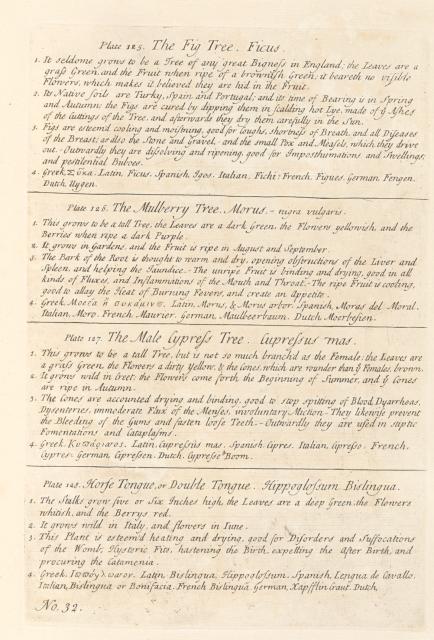 Plate 125. The Fig Tree. Ficus.
1. It seldome grows to be a Tree of any great Bigneſs in England; the Leaves are a
graſs Green, and the Fruit when ripe of a brownish Green; it beareth no visible
Flowers, which makes it believed they are hid in the Fruit.
2. Its Native soils are Turky, Spain, and Portugal; and its time of Bearing is in Spring
and Autumn; the Figs are cured by dipping them in scalding hot Lye, made of ẙ Aſhes
of the Cuttings of the Tree, and afterwards they dry them carefully in the Sun.
3. Figs are esteem'd cooling and moiſtning, good for Coughs, shortneſs of Breath, and all Diſeases
of the Breast; as also the Stone and Gravel, - and the small Pox and Measels, which they drive
out. - Outwardly they are diſsolving and ripening, good for Imposthumations, and Swellings;
and pestilential Buboes.
4. Greek, Σῦκα. Latin, Ficus. Spanish, Igos. Italian, Fichi. French, Figues. German, Fengen.
Dutch, Uygen.
Plate 126. The Mulberry Tree. Morus. - nigra vulgaris.
1. This grows to be a tall Tree, the Leaves are a dark Green, the Flowers yellowish, and the
Berries when ripe a dark Purple.
2. It grows in Gardens, and the Fruit is ripe in August and September.
3. The Bark of the Root is thought to warm and dry, opening obstructions of the Liver and
Spleen, and helping the Jaundice. - The unripe Fruit is binding and drying, good in all
kinds of Fluxes, and Inflammations of the Mouth and Throat. - The ripe Fruit is cooling,
good to allay the Heat of Burning Fevers, and create an Appetite.
4. Greek, Μορέα ἢ συκάμινος. Latin, Morus, & Morus arbor. Spanish, Moras del Moral.
Italian, Moro. French, Maurier. German, Maulbeerbaum. Dutch, Moerbesien.
Plate 127. The Male Cypreſs Tree. Cupreſsus mas.
1. This grows to be a tall Tree, but is not so much branch'd as the Female; the Leaves are
a graſs Green, the Flowers a dirty Yellow, & the Cones, which are rounder than ẙ Females, brown.
2. It grows wild in Creet; the Flowers come forth the Beginning of Summer, and ẙ Cones
are ripe in Autumn.
3. The Cones are accounted drying and binding, good to stop spitting of Blood, Dyarrhoeas,
Dysenteries, immoderate Flux of the Menses, involuntary Miction. - They likewise prevent
the Bleeding of the Gums and fasten loose Teeth. - Outwardly they are used in stiptic
Fomentations and Cataplasms.
4. Greek, Κυπάρισσος. Latin, Cupreſsus mas. Spanish, Cipres. Italian, Cipreſso. French,
Cypres. German, Cipreſsen. Dutch, Cypreſse Boom.
Plate 128. Horſe Tongue, or Double Tongue. Hippogloſsum. Bislingua.
1. The Stalks grow five or Six Inches high, the Leaves are a deep Green, the Flowers
whitish, and the Berrys red.
2. It grows wild in Italy, and flowers in Iune.
3. This Plant is esteem'd heating and drying, good for Disorders and Suffocations
of the Womb, Hysteric Fits, hastening the Birth, expelling the After Birth, and
procuring the Catamenia.
4. Greek, Ἱππόγλωσσον. Latin, Bislingua, Hippogloſsum. Spanish, Lengua de Cavallo.
Italian, Bislingua, or Bonifacia. French, Bislingua. German, Zapfflin Craut. Dutch,
No. 32.